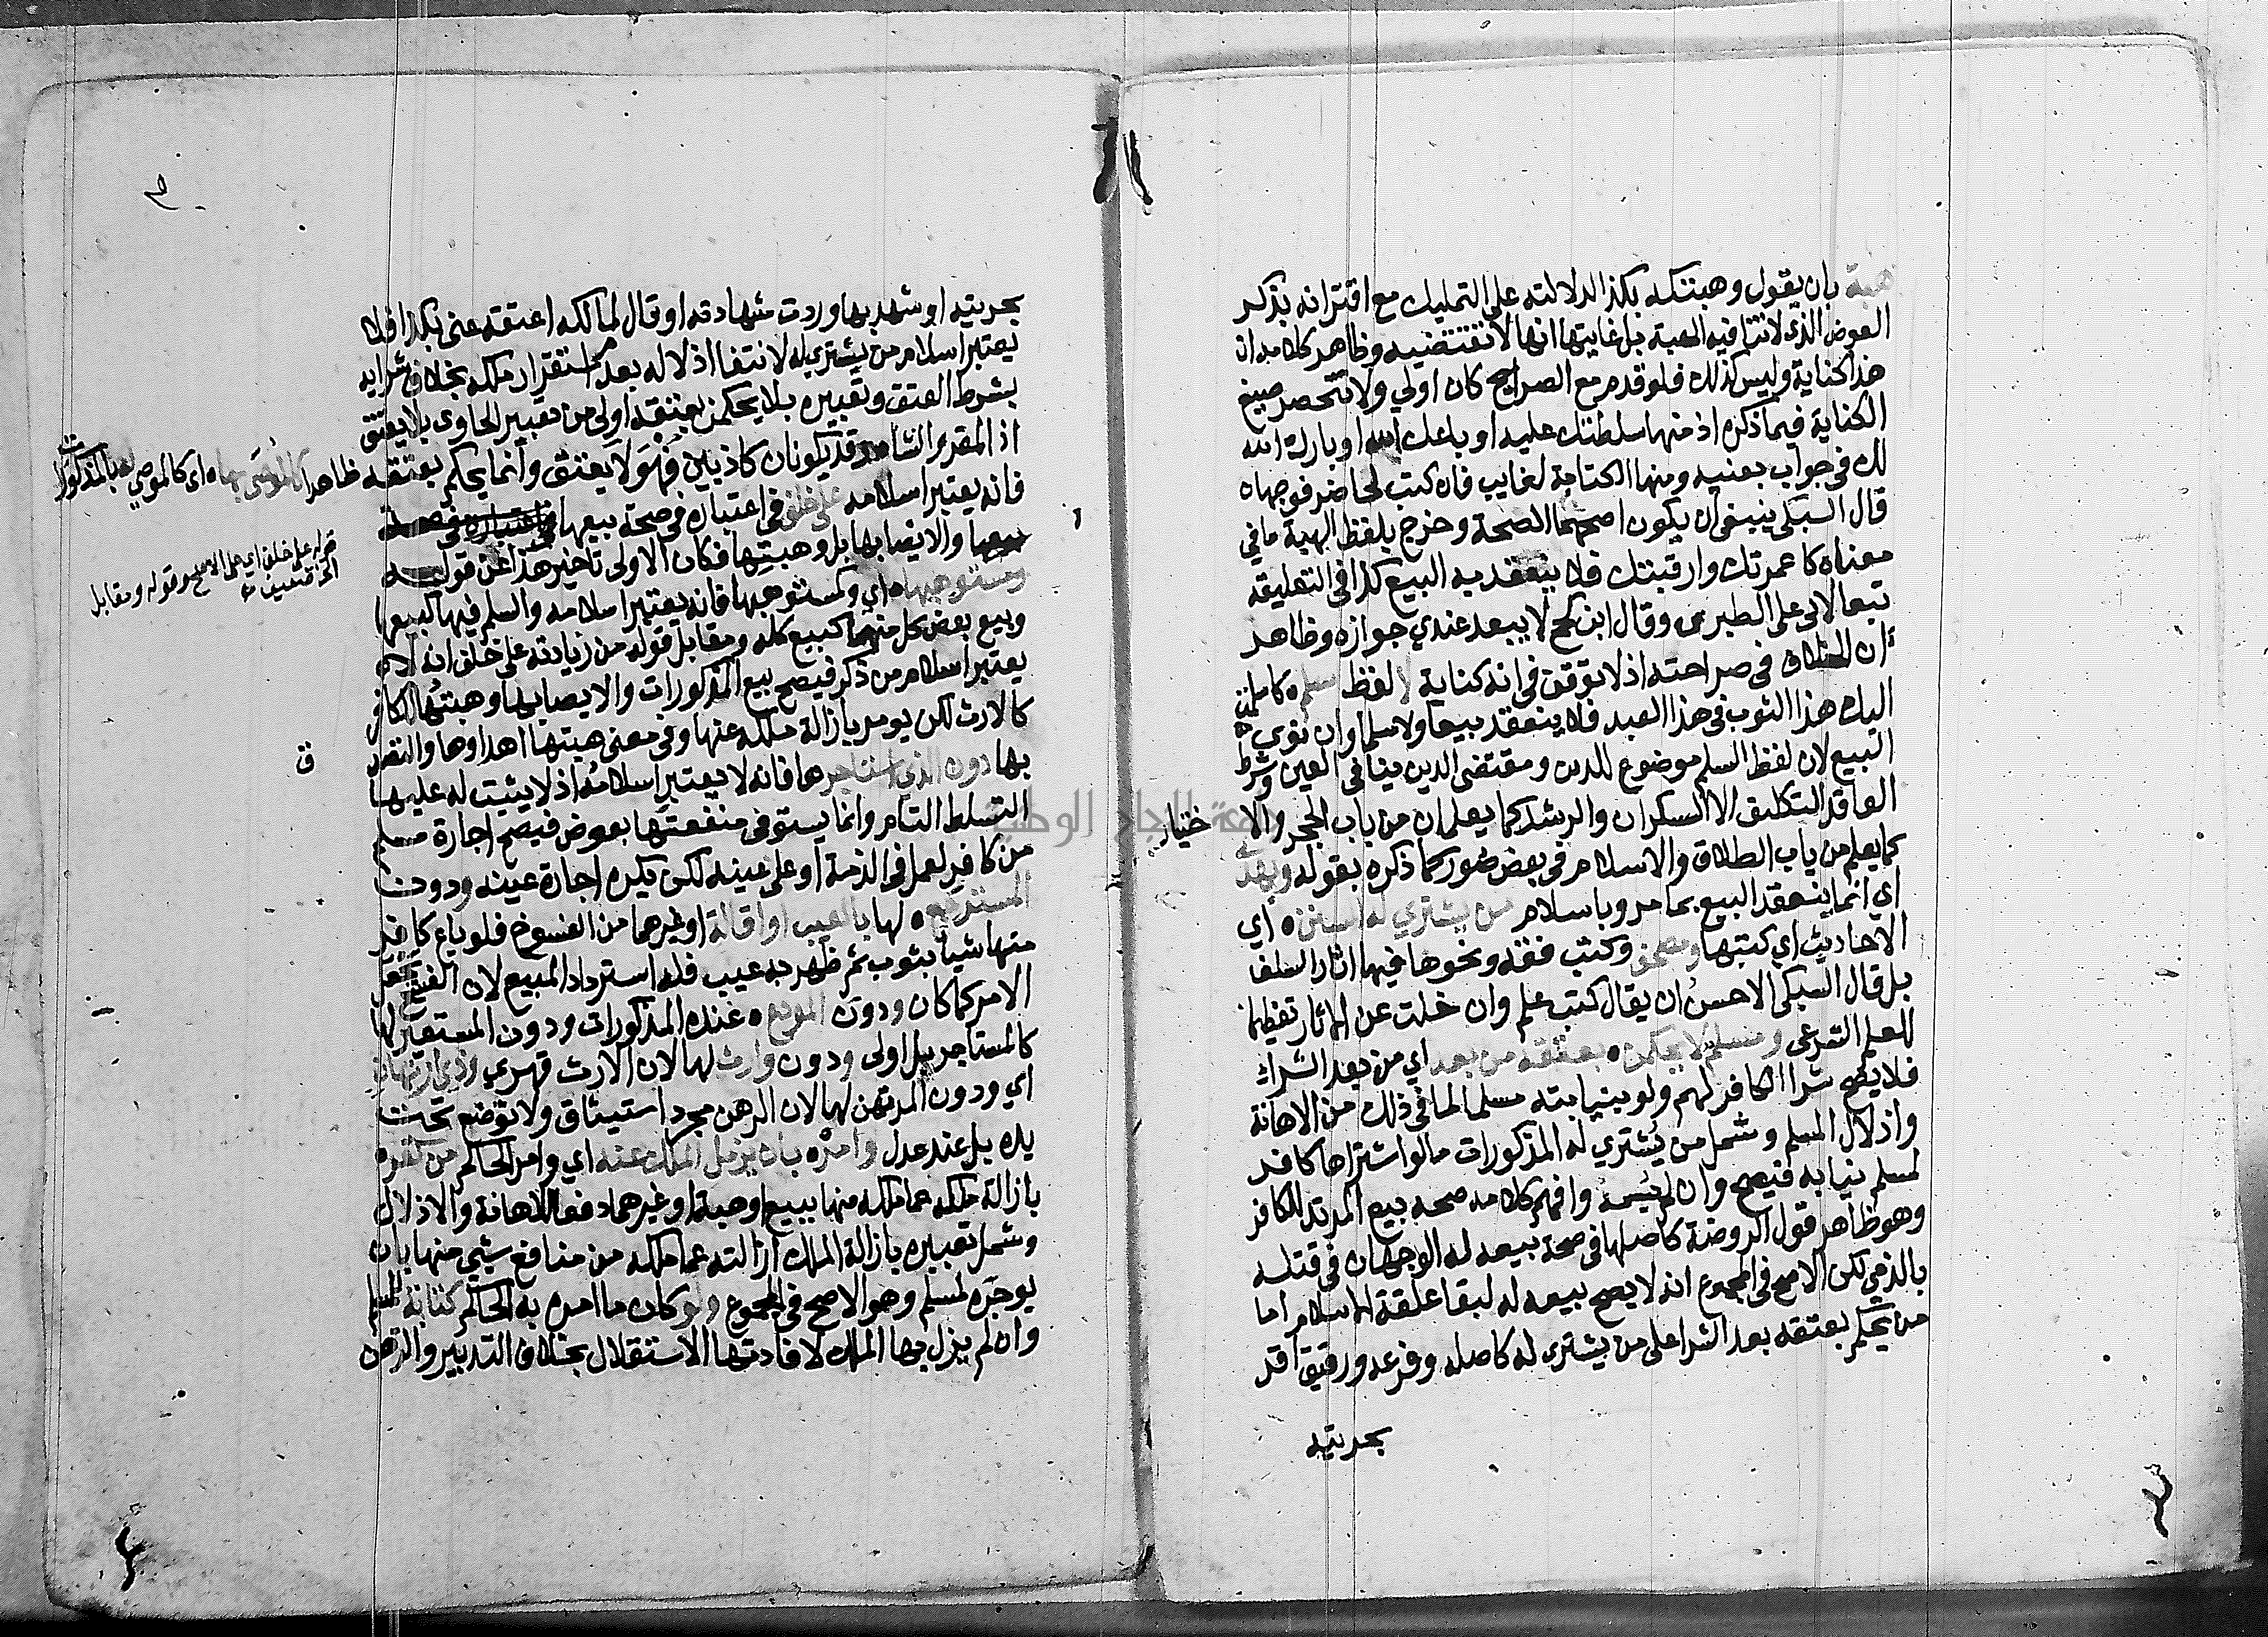 هبة بان يقول وهبتكه بكذا لدلالته على التمليك مع اقترانه بذكر
العوض الذي لا تنافيه الهبة بل غايتها انها لا تقتضيه وظاهر كلامه ان
هذا كناية وليس كذلك فلو قدمه مع الصرايح كان اولي ولا تنحصر صيغ
الكناية فيما ذكره اذ منها سلطتك عليه او باعك الله او بارك الله
لك في جواب بعنيه ومنها الكتابة لغايب فان كتب لحاضر فوجهان
قال السبكي ينبغي ان يكون اصحهما الصحة وخرج بلفظ الهبة ما في
معناه كاعمرتك وارقبتك فلا ينعقد به البيع كذا في التعليقة
تبعا لابي علي الطبري وقال ابن كج لا يبعد عندي جوازه وظاهر
ان الخلاف في صراحته اذ لا توقف في انه كناية لا لفظ سلم ه كاسلمت
اليك هذا الثوب في هذا العبد فلا ينعقد بيعا ولا سلما وان نوي به
البيع لان لفظ السلم موضوع للدين ومقتضى الدين ينافي العين وشرط
العاقد التكليف الا السكران والرشد كما يعلمان من باب الحجر والا
خيار
كما يعلم من باب الطلاق والاسلام في بعض صور كما ذكره بقوله وبهذ
اي انما ينعقد البيع بما مر وباسلام من يشتري له السنن ه اي
الاحاديث اي كتبها ومصحف وكتب فقه ونحوها فيها اثار السلف
بل قال السبكي الاحسن ان يقال كتب علم وان خلت عن الاثار تعظيما
للعلم الشرعي ومسلم لا يحكمن ه بعتقه من بعد اي من بعد الشرا
فلا يصح شرا الكافر لهم ولو بنيابته مسلما لما في ذلك من الاهانة
واذلال المسلم وشمل من يشتري له المذكورات ما لو اشتراها كافر
لمسلم نيابه فيصح وان لم يسمه وافهم كلامه صحه بيع المرتد للكافر
وهو ظاهر قول الروضة كاصلها في صحة بيعه له الوجهان في قتله
بالذمي لكن الاصح في المجموع انه لا يصح بيعه له لبقا علقة الاسلام اما
من يحكم بعتقه بعد الشرا على من يشترى له كاصله وفرعه ورقيق اقر
بحريته
بحريته او شهد بها وردت شهادته او قال لمالكه اعتقه عني بكذا فلا
يعتبر اسلام من يشتري له لانتفا اذلاله بعد استقرار ملكه بخلاف شرايه
بشرط العتق وتعبيره بلا يحكمن بعتقه اولى من تعبير الحاوي بلا يعتق
اذ المقر والشاهد قد يكونان كاذبين فهو لا يعتق وانما يحكم بعتقه ظاهرا كالموصى بها ه اي كالموصي له بالمذكورات
فانه يعتبر اسلامه على خلف في اعتباره في صحة بيعها
والايصا بها بل وهبتها فكان الاولى تاخير هذا عن قوله
قوله على خلف اي على الاصح وقوله ومقابل
ومستوهبها ه اي وكمستوهبها فانه يعتبر اسلامه والسلم فيها كبيعها
وبيع بعض كل منهما كبيع كله ومقابل قوله من زيادته على خلف انه لا
يعتبر اسلام من ذكر فيصح بيع المذكورات والايصا بها وهبتها للكافر
كالارث لكن يومر بازالة ملكه عنها وفي معنى هبتها اهداوها والتصدق
ق
بها دون الذي استاجرها فانه لا يعتبر اسلامه اذ لا يثبت له عليها
التسلط التام وانما يستوفى منفعتها بعوض فيصح اجارة مسلم
من كافر لعمل في الذمة او على عينه لكن يكره اجارة عينه ودون
المسترجع ه لها بالعيب او اقالة او غيرهما من الفسوخ فلو باع كافر
منها شيا بثوب ثم ظهر به عيب فله استرداد المبيع لان الفسخ يجعل
الامر كما كان ودون المودع ه عنده المذكورات ودون المستعير لها
كالمستاجر بل اولى ودون وارث لها لان الارث قهري وذي ارتهان
اي ودون المرتهن لها لان الرهن مجرد استيثاق ولا توضع تحت
يده بل عند عدل وامره بان يزيل الملك عنه اي وامر الحاكم من كفره
بازالة ملكه عما ملكه منها ببيع او هبة او غيرهما دفعا للاهانة والاذلال
وشمل تعبيره بازالة الملك ازالته عما ملكه من منافع شي منها بان
يوجره لمسلم وهو الاصح في المجموع ولو كان ما امره به الحاكم كتابة لمسلم
وان لم يزل بها الملك لافادتها الاستقلال بخلاف التدبير والرهن